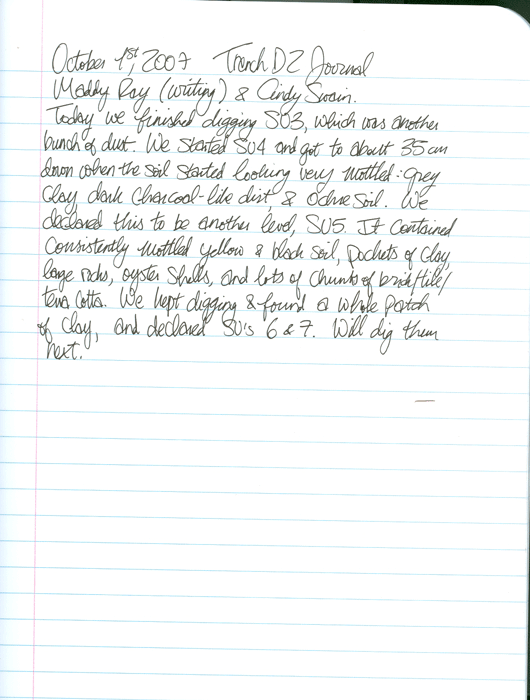 October 1st, 2007 Trench D2 Journal
Maddy Ray (writing) & Cindy Swain.
Today we finished digging SU3, which was another
bunch of dirt. We started SU4 and got to about 35cm
down when the soil started looking very mottled: grey
clay, dark charcoal-like dirt, & ochre soil. We
declared this to be another level, SU5. It contained
consistently mottled yellow & black soil, pockets of clay,
large rocks, oyster shells, and lots of chunks of brick/tile/
terra cotta. We kept digging & found a whole patch
of clay, and declared SU's 6 & 7. Will dig them
next.